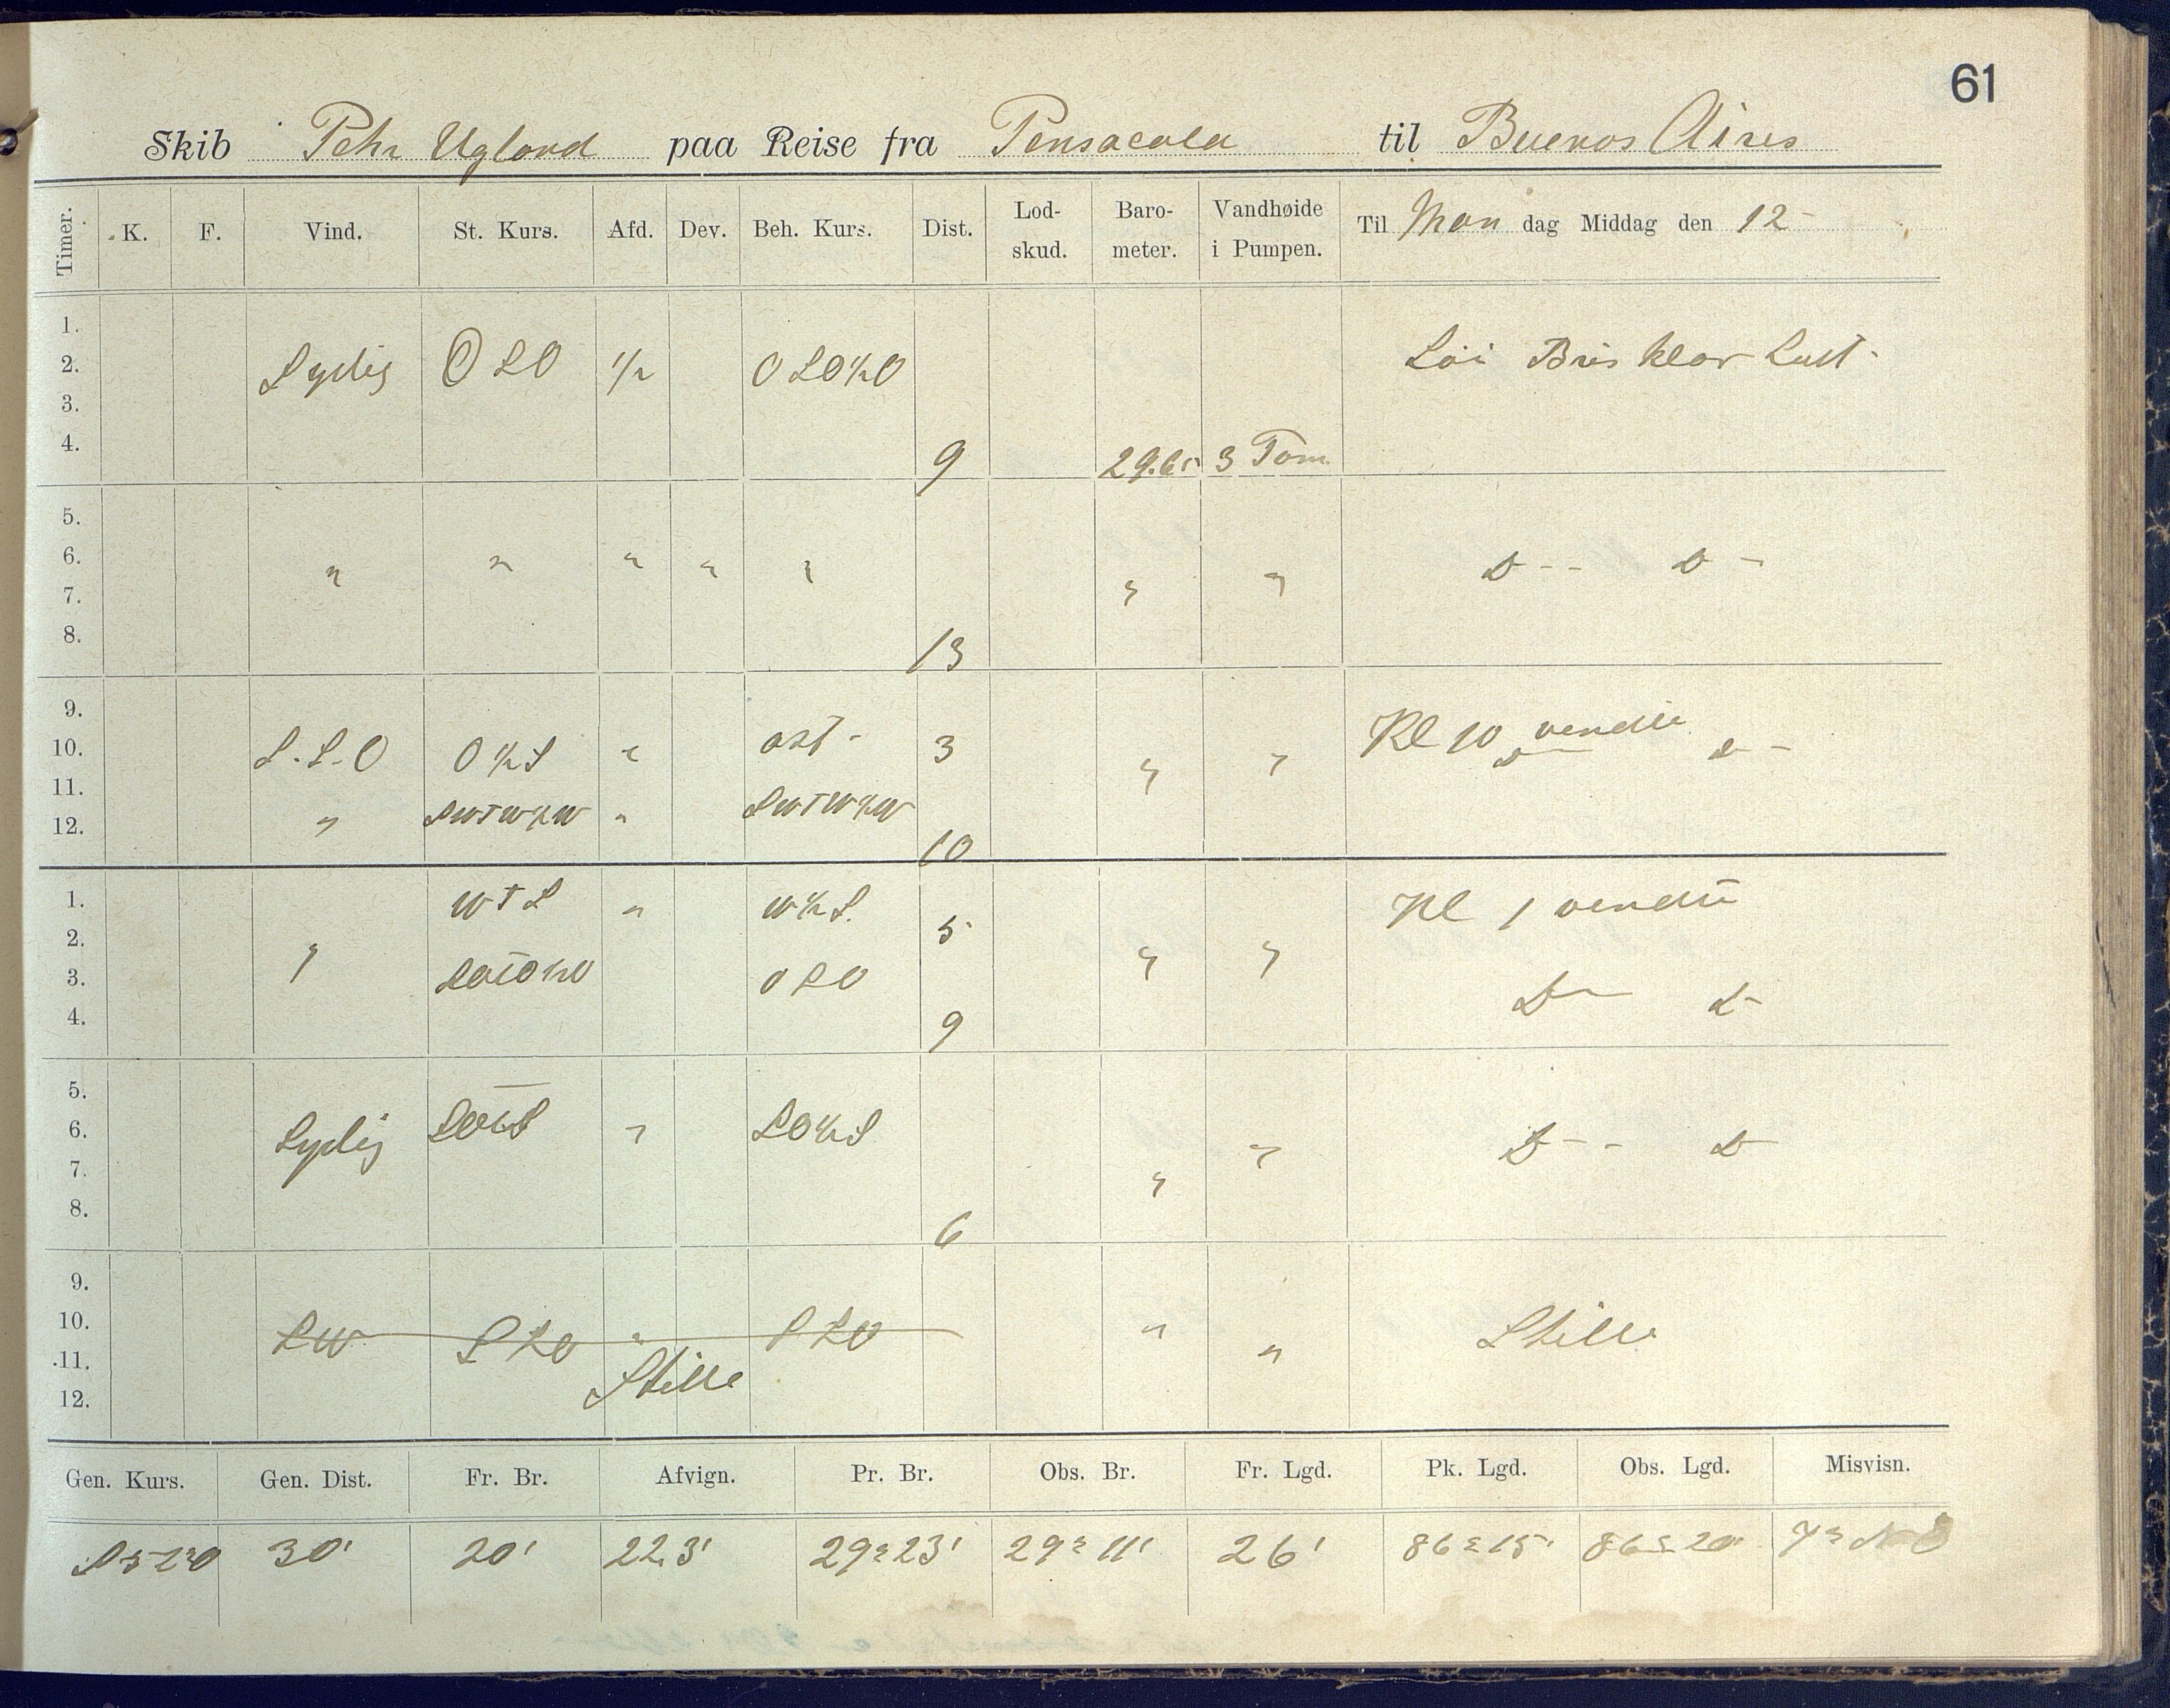 61
Skib Pehr Ugland paa Reise fra Pensacola til Buenos Aires
Timer. K. F. Vind. St. Kurs. Afd. Dev. Beh. Kurs. Dist. Lod-skud. Baro-meter. Vandhøide i Pumpen. Til Man dag Middag den 12
1.
2. Sydlig OSO 1/2 OSO½O Löi Bris klar Luft
3.
4. 9 29.65 3 Tom
5.
6. " " " " " " " D-- D-
7.
8. 13
9.
10. S.S.O O½S " ost- 3 " " Kl 10 vendte D- D-
11.
12. " SWTW½W " SWTW½W 10
1. WTS " W½S. Kl 1 vendte
2. " 5 " "
3. SOTO½O OSO D- D-
4. 9
5.
6. Sydlig " SO½S D-- D-
7. " "
8. 6
9.
10. SW SSO " SSO " Stille
11. Stille "
12.
Gen. Kurs. Gen. Dist. Fr. Br. Afvign. Pr. Br. Obs. Br. Fr. Lgd. Pk. Lgd. Obs. Lgd. Misvisn.
30' 20' 22,3' 29° 23' 29° 11' 26' 86° 15' 86° 20'